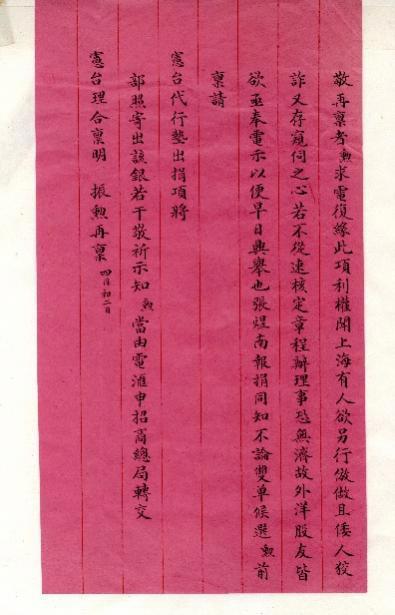 敬再稟者勲求電復緣此項利權聞上海有人欲另行倣做且倭人狡
詐又存窺伺之心若不從速核定章程辦理事恐無濟故外洋股友皆
欲亟奉電示以便早日興舉也張煜南報捐同知不論雙單候選勲前
稟請
憲台代行墊出捐項將
部照寄出該銀若干敬祈示知勲當由電滙申招商總局轉交
憲台理合稟明 振勲再稟 四月初二日